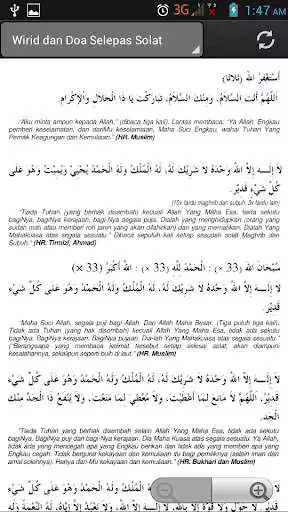 3G 1:47 AM
Wirid dan Doa Selepas Solat
أَسْتَغْفِرُ اللَّهَ (ثلاثا)
اَللَّهُمَّ أَنْتَ السَّلَامُ، وَمِنْكَ السَّلَامُ، تَبَارَكْتَ يَا ذَا الْجَلَالِ وَالْإِكْرَامِ.
"Aku minta ampun kepada Allah," (dibaca tiga kali). Lantas membaca: "Ya Allah, Engkau
pemberi keselamatan, dan dariMu keselamatan, Maha Suci Engkau, wahai Tuhan Yang
Pemilik Keagungan dan Kemuliaan." (HR. Muslim)
لَا إِلَـــهَ إِلَّا اللَّهُ وَحْدَهُ لَا شَرِيْكَ لَهُ، لَهُ الْمُلْكُ وَلَهُ الْحَمْدُ يُحْيِيْ وَيُمِيْتُ وَهُوَ عَلَى
كُلِّ شَيْءٍ قَدِيْرٌ.
(10x tardu maghrib dan subuh, 3x fardu lain)
"Tiada Tuhan (yang berhak disembah) kecuali Allah Yang Maha Esa, tiada sekutu
bagiNya, bagiNya kerajaan, bagi Nya segala puja. Dialah yang menghidupkan (orang yang
sudah mati atau memberi roh janin yang akan dilahirkan) dan yang mematikan. Dialah Yang
Mahakuasa atas segala sesuatu." Dibaca sepuluh kali setiap sesudah solat Maghrib dan
Subuh." (HR. Tirmizi, Ahmad)
سُبْحَانَ اللهِ (33 ×) : الْحَمْدُ لِلَّهِ (33 ×) : اللهُ أَكْبَرُ (33 ×)
لَا إِلَـــهَ إِلَّا اللَّهُ وَحْدَهُ لَا شَرِيْكَ لَهُ، لَهُ الْمُلْكُ وَلَهُ الْحَمْدُ وَهُوَ عَلَى كُلِّ شَيْءٍ
قَدِيْرٌ.
"Maha Suci Allah, segala puji bagi Allah. Dan Allah Maha Besar. (Tiga puluh tiga kali).
Tidak ada Tuhan (yang hak disembah) kecuali Allah Yang Maha Esa, tidak ada sekutu
bagiNya. BagiNya kerajaan. BagiNya pujaan. Dia-lah Yang Mahakuasa atas segala sesuatu."
("Barangsiapa yang membaca kalimat tersebut setiap selesai solat, akan diampuni
kesalahannya, sekalipun seperti buih di laut." (HR. Muslim)
لَا إِلَـــهَ إِلَّا اللَّهُ وَحْدَهُ لَا شَرِيْكَ لَهُ، لَهُ الْمُلْكُ وَلَهُ الْحَمْدُ وَهُوَ عَلَى كُلِّ شَيْءٍ
قَدِيْرٌ، اَللَّهُمَّ لَا مَانِعَ لِمَا أَعْطَيْتَ، وَلَا مُعْطِيَ لِمَا مَنَعْتَ، وَلَا يَنْفَعُ ذَا الْجَدِّ مِنْكَ
الْجَدُّ.
"Tiada Tuhan yang berhak disembah selain Allah Yang Maha Esa, tidak ada sekutu
bagiNya. BagiNya puji dan bagi-Nya kerajaan. Dia Maha Kuasa atas segala sesuatu. Ya Allah,
tidak ada yang mencegah apa yang Engkau berikan dan tidak ada yang memberi apa yang
Engkau cegah. Tidak berguna kekayaan dan kemuliaan itu bagi pemiliknya (selain iman dan
amal solehnya). Hanya dari-Mu kekayaan dan kemuliaan." (HR. Bukhari dan Muslim)
لَا إِلَـــهَ إِلَّا اللَّهُ وَحْدَهُ لَا شَرِيْكَ لَهُ، لَهُ الْمُلْكُ وَلَهُ الْحَمْدُ وَهُوَ عَلَى كُلِّ شَيْءٍ
قَدِيْرٌ. لَا حَوْلَ وَلَا قُوَّةَ إِلَّا بِاللهِ، لَا إِلَـــهَ إِلَّا اللهُ، وَلَا نَعْبُدُ إِلَّا إِيَّاهُ، لَهُ النِّعْمَةُ وَلَهُ